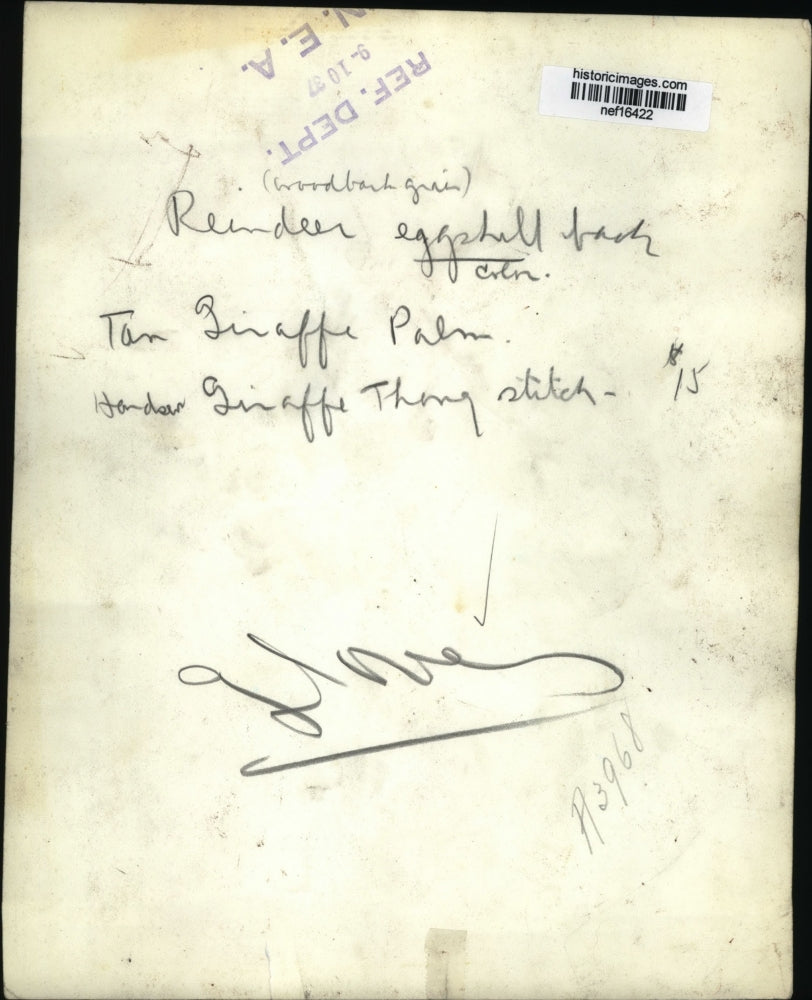 N. E. A.
9-10 37
REF. DEPT.
historicimages.com
nef16422
(woodbark grain)
Reindeer eggshell back
color.
Tan Giraffe Palm.
Handsewn Giraffe Thong stitch - $15
Gloves
A3968